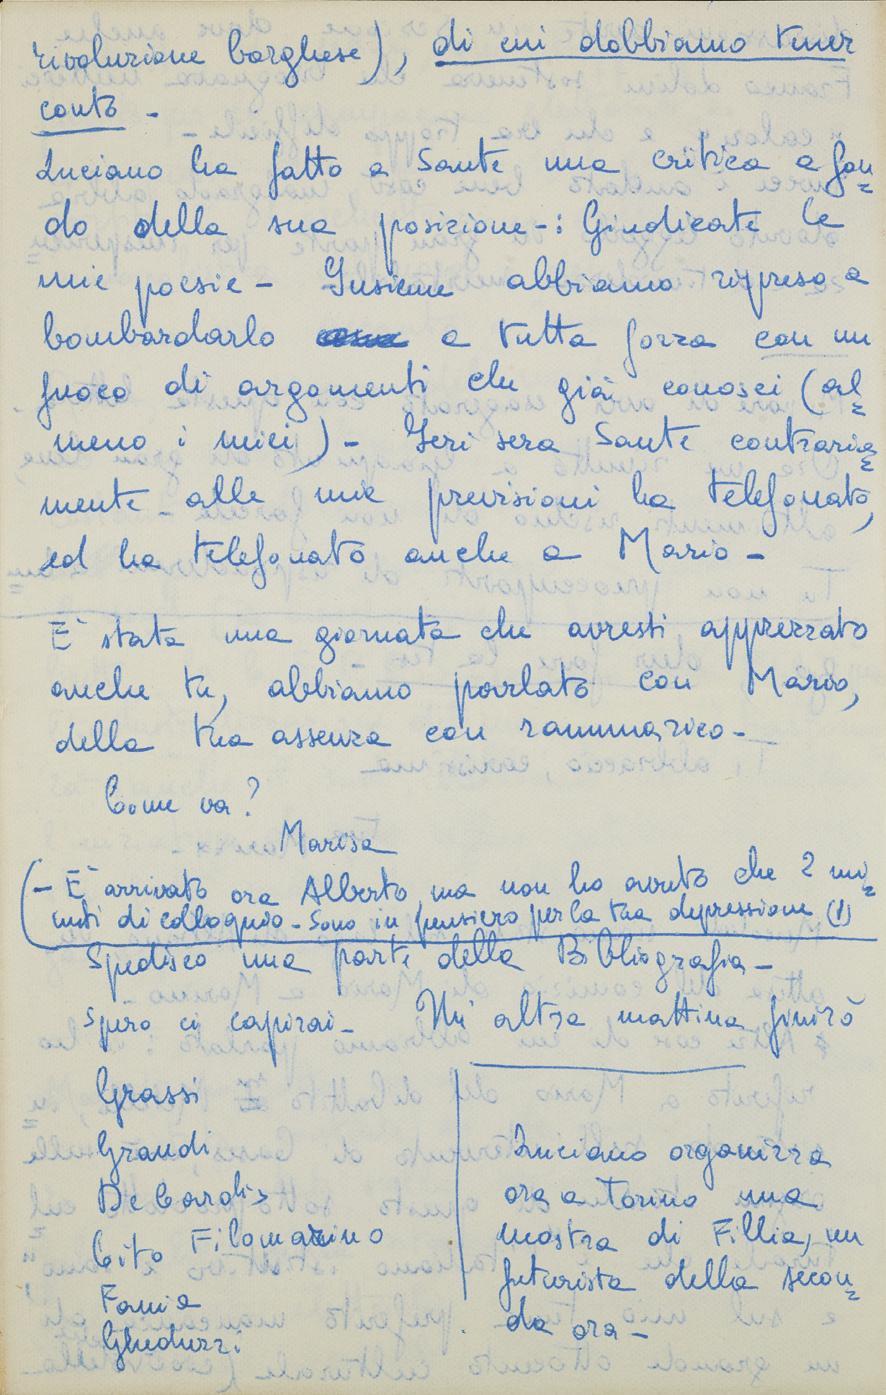 rivoluzione borghese), di cui dobbiamo tener
conto -
Luciano ha fatto a Sante una critica a fon=
do della sua posizione -: Giudicate le
mie poesie - Insieme abbiamo ripreso a
bombardarlo a tutta forza con un
fuoco di argomenti che già conosci (al=
meno i miei) - Ieri sera Sante contraria=
mente alle mie previsioni ha telefonato,
ed ha telefonato anche a Mario -
E' stata una giornata che avresti apprezzato
anche tu, abbiamo parlato con Mario,
della tua assenza con rammarico -
Come va?
Marisa
(- E' arrivato ora Alberto, ma non ho avuto che 2 mi=
nuti di colloquio - Sono in pensiero per la tua depressione (!)
Spedisco una parte della Bibliografia -
Spero ci capirai - Un' altra mattina finirò
Grassi
Grandi
De Carolis
Cito Filomarino
Fania
Gheduzzi
Luciano organizza
ora a Torino una
mostra di Fillia, un
futurista della secon=
da ora -